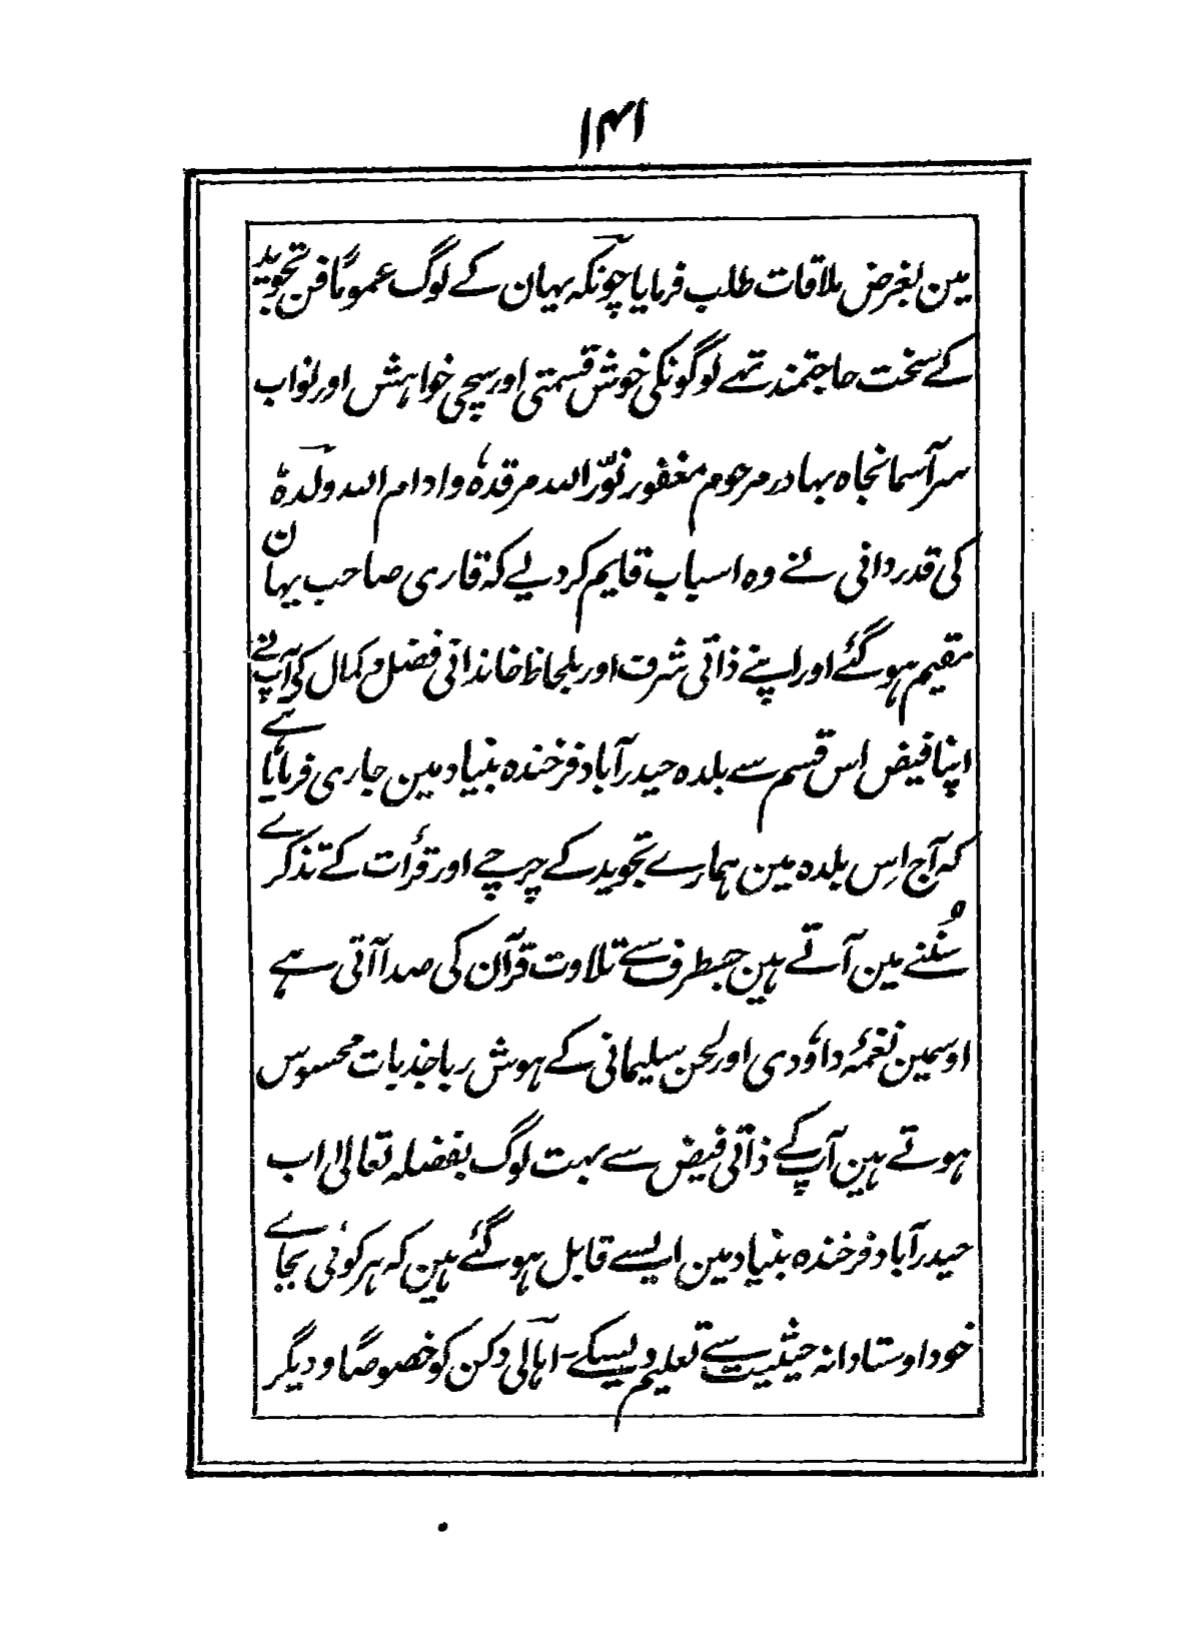 ۱۴۱
مین بغرض ملاقات طلب فرمایا چونکہ یہان کے لوگ عموماً فن تجوید
کے سخت حاجتمند تھے لوگونکی خوش قسمتی اور سچی خواہش اور نواب
سر آسمانجاہ بہادر مرحوم مغفور نوّر اللہ مرقدہٗ وادام اللہ ولَدہٗ
کی قدردانی نے وہ اسباب قایم کردیے کہ قاری صاحب یہان
مقیم ہوگئے اور اپنے ذاتی شرف اور بلحاظ خاندانی فضل و کمال کی آپ نے
اپنا فیض اس قسم سے بلدہ حیدرآباد فرخندہ بنیاد مین جاری فرمایا ہے
کہ آج اِس بلدہ مین ہمارے تجوید کے چرچے اور قرأت کے تذکرے
سُننے مین آتے ہین جسطرف سے تلاوت قرآن کی صدا آتی ہے
اوسمین نغمۂ داؤدی اور لحن سلیمانی کے ہوش ربا جذبات محسوس
ہوتے ہین آپ کے ذاتی فیض سے بہت لوگ بفضلہ تعالیٰ اب
حیدرآباد فرخندہ بنیاد مین ایسے قابل ہوگئے ہین کہ ہر کوئی بجاے
خود اوستادانہ حیثیت سے تعلیم دیسکے - اہالی دکن کو خصوصاً و دیگر